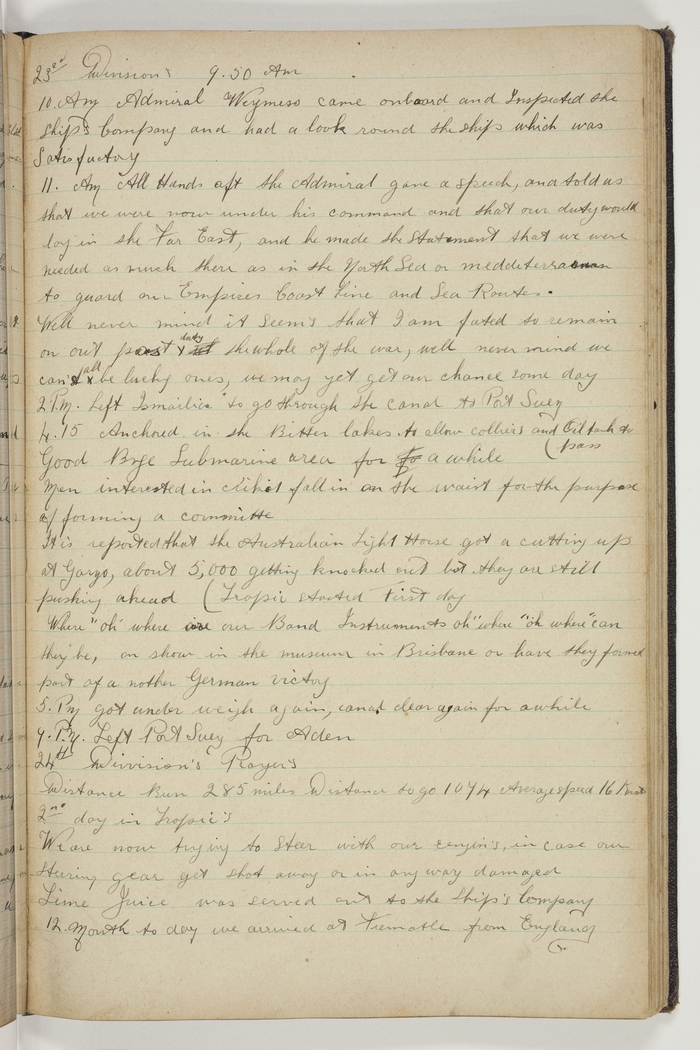 23rd Division's 9.50 Am
10. Am Admiral Weymeso came onboard and Inspected the
Ship's Company and had a look round the ships which was
Satisfactory
11. Am All Hands aft the Admiral gave a speech, and told us
that we were now under his command and that our duty would
lay in the Far East, and he made the statement that we were
needed as much there as in the North Sea or meddeterranean
to guard our Empires Coast Line and Sea Routes.
Well never mind it seems that I am fated to remain
on out post duty the whole of the war, well never mind we
can't all be lucky ones, we may yet get our chance some day
2 P.m. Left Ismailia to go through the canal to Port Suez
4.15 Anchored in the Bitter lakes to allow colliers and Oil tank to
(pass
Good Bye Submarine area for a while
Men interested in fall in on the waist for the purpose
of forming a committe
It is reported that the Australian Light Horse got a cutting up
at Garzo, about 5,000 getting knocked out but they are still
pushing ahead (Tropic started First day
Where "oh" where are our Band Instruments oh" where "oh where" can
they be, on show in the museum in Brisbane or have they formed
part of a nother German victory
5. Pm got under weigh again, canal clear again for a while
9. P.m. Left Port Suez for Aden
24th Divvision's Prayer's
Distance Run 285 miles Distance to go 1074 Average speed 16 Knots
2nd day in Tropic's
We are now trying to Steer with our engin's, in case our
Steering gear get shot away or in any way damaged
Lime Juice was served out to the Ship's Company
12. Month to day we arrived at Fremantle from England